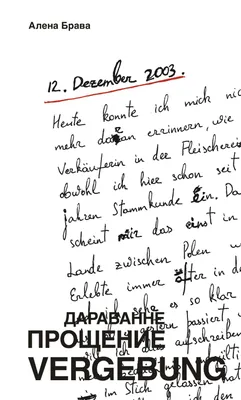 Алена Брава
12. Dezember 2003.
Heute konnte ich mich nic
mehr daran errinnern, wie
Verkäuferin in der Fleischerei
obwohl ich hier schon seit
jahren Stammkunde ein. Da
scheint mir das einst in
Lande zwischen Polen u
Erlebte immer öfter in d
es so klar
ДАРАВАННЕ
gestern passiert
ПРОЩЕНИЕ
aufschreiben
VERGEBUNG
im Stich gelassen hat